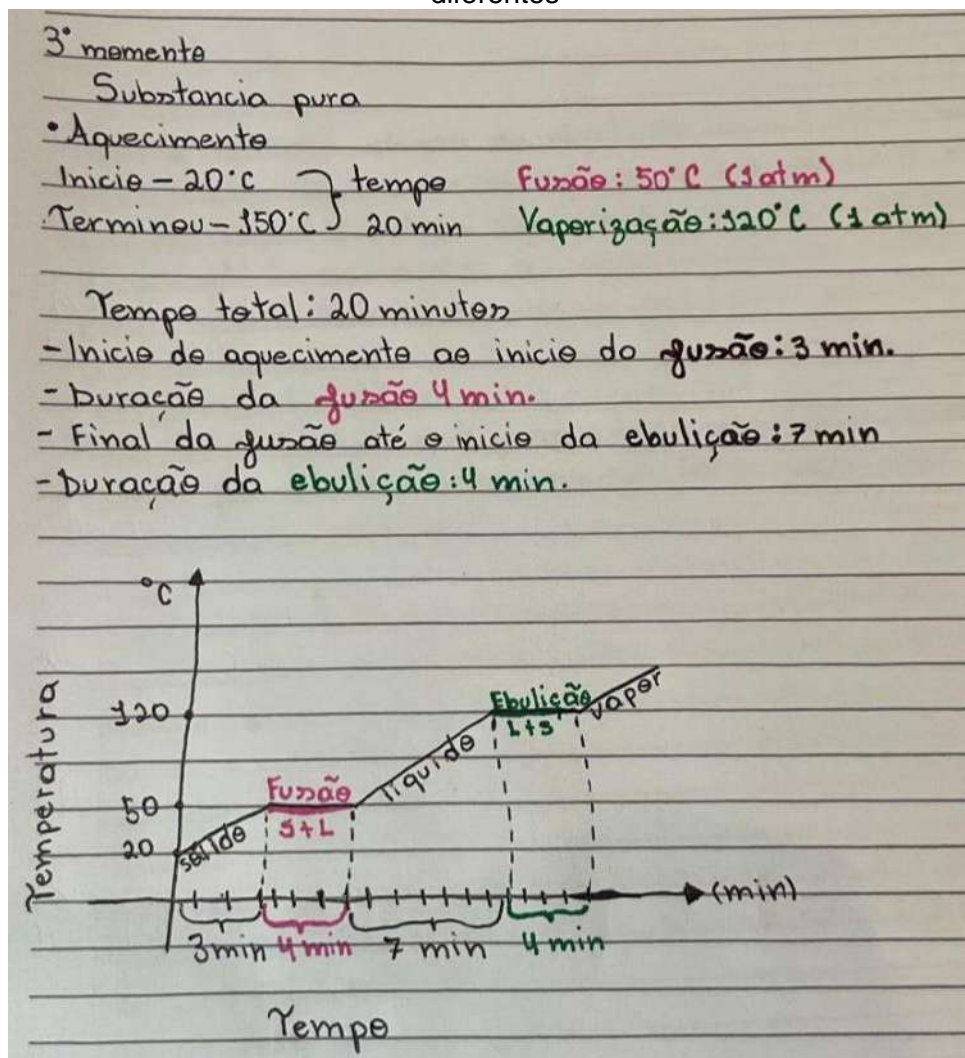 diferentes
3° momento
Substancia pura
• Aquecimento
Inicio - 20°C } tempo Fusão: 50°C (1 atm)
Terminou - 150°C } 20 min Vaporização: 120°C (1 atm)
Tempo total: 20 minutos
- Inicio do aquecimento ao inicio do fusão: 3 min.
- Duração da fusão 4 min.
- Final da fusão até o inicio da ebulição: 7 min
- Duração da ebulição: 4 min.
°C
Temperatura
120
50
20
solido
Fusão
S+L
liquido
Ebulição
L+S
vapor
(min)
3min 4 min 7 min 4 min
Tempo